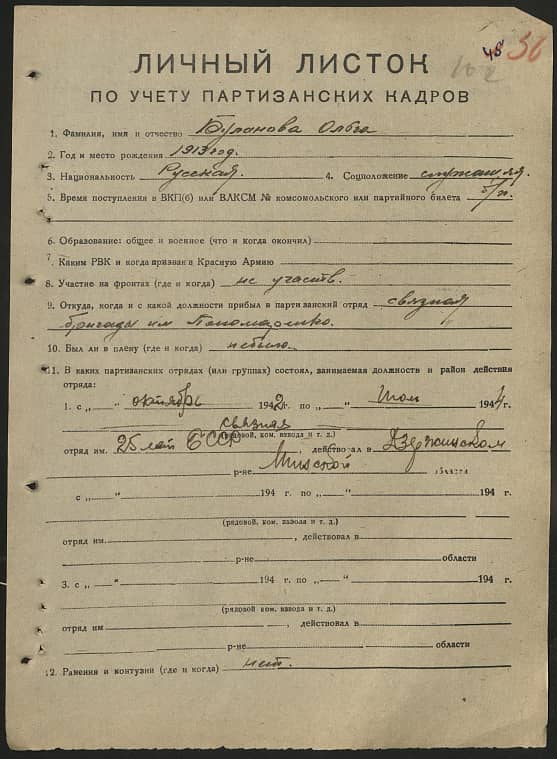 48 56
102
ЛИЧНЫЙ ЛИСТОК
ПО УЧЕТУ ПАРТИЗАНСКИХ КАДРОВ
1. Фамилия, имя и отчество Буланова Ольга
2. Год и место рождения 1913 год.
3. Национальность Русская. 4. Соцположение служащая.
5. Время поступления в ВКП(б) или ВЛКСМ № комсомольского или партийного билета б/п.
6. Образование: общее и военное (что и когда окончил)
7. Каким РВК и когда призван в Красную Армию
8. Участие на фронтах (где и когда) не участв.
9. Откуда, когда и с какой должности прибыл в партизанский отряд связная
бригады им Пономаренко.
10. Был ли в плену (где и когда) не была.
11. В каких партизанских отрядах (или группах) состоял, занимаемая должность и район действия
отряда:
1. с „ “ октябрь 1942 г. по „ “ Июл 1944 г.
связная
(рядовой, ком. взвода и т. д.)
отряд им. 25 лет БССР, действовал в Дзержинском
р-не Минской области
с „ “ 194 г. по „ “ 194 г.
(рядовой, ком. взвода и т. д.)
отряд им , действовал в
р-не области
3. с „ “ 194 г. по „ “ 194 г.
(рядовой, ком. взвода и т. д.)
отряд им , действовал в
р-не области
12. Ранения и контузии (где и когда) нет.